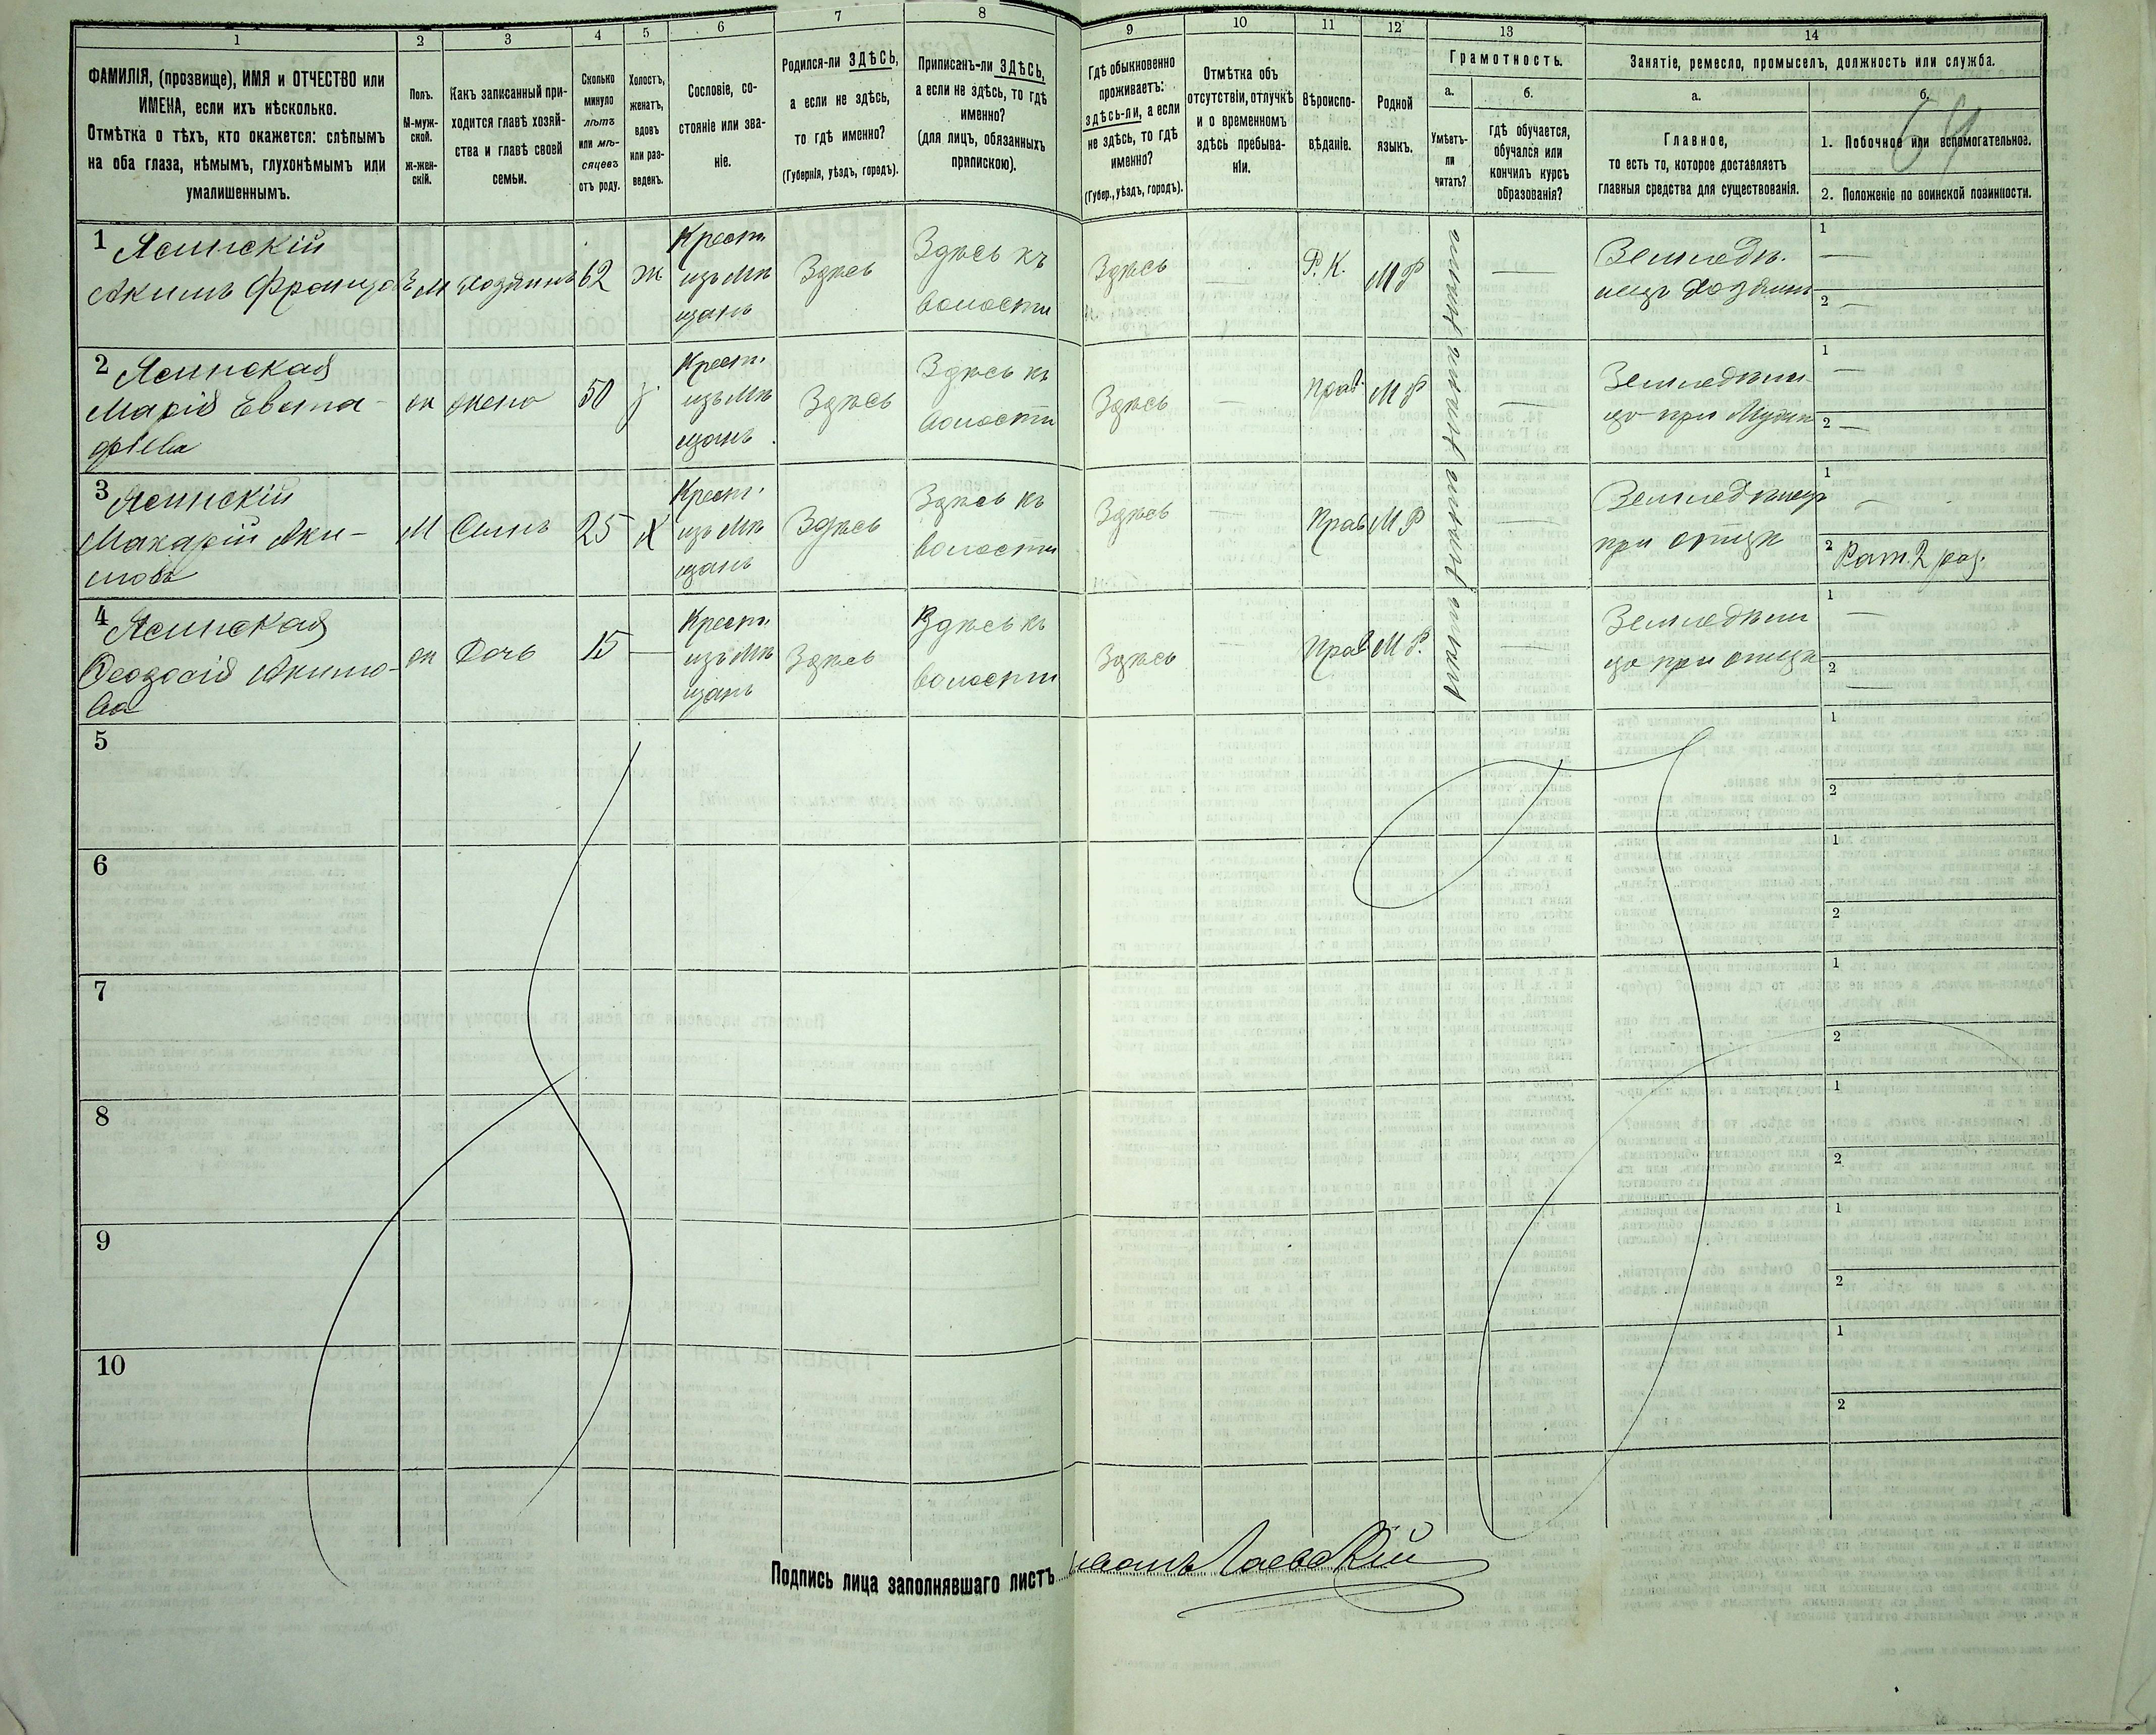 1 2 3 4 5 6 7 8 9 10 11 12 13 14
ФАМИЛІЯ, (прозвище), ИМЯ и ОТЧЕСТВО или
ИМЕНА, если ихъ нѣсколько.
Отмѣтка о тѣхъ, кто окажется: слѣпымъ
на оба глаза, нѣмымъ, глухонѣмымъ или
умалишеннымъ.
Полъ.
М-муж-
ской.
Ж-жен-
скій.
Какъ записанный при-
ходится главѣ хозяй-
ства и главѣ своей
семьи.
Сколько
минуло
лѣтъ
или мѣ-
сяцевъ
отъ роду.
Холостъ,
женатъ,
вдовъ
или раз-
веденъ.
Сословіе, со-
стояніе или зва-
ніе.
Родился-ли ЗДѢСЬ,
а если не здѣсь,
то гдѣ именно?
(Губернія, уѣздъ, городъ).
Приписанъ-ли ЗДѢСЬ,
а если не здѣсь, то гдѣ
именно?
(для лицъ, обязанныхъ
припискою).
Гдѣ обыкновенно
проживаетъ:
здѣсь-ли, а если
не здѣсь, то гдѣ
именно?
(Губер., уѣздъ, городъ).
Отмѣтка объ
отсутствіи, отлучкѣ
и о временномъ
здѣсь пребыва-
ніи.
Вѣроиспо-
вѣданіе.
Родной
языкъ.
Грамотность.
а.
Умѣетъ-
ли
читать?
б.
гдѣ обучается,
обучался или
кончилъ курсъ
образованія?
Занятіе, ремесло, промыселъ, должность или служба.
а.
Главное,
то есть то, которое доставляетъ
главныя средства для существованія.
б.
64
1. Побочное или вспомогательное.
2. Положеніе по воинской повинности.
1 Ясинскій
Акимъ Францовъ
М
Хозяинъ
62
ж
Крест.
изъ Мѣ
щанъ
Здѣсь
Здѣсь къ
волости
Здѣсь
—
Р. К.
М Р
—
Земледѣ.
лецъ Хозяинъ
1 —
2 —
2 Ясинская
Марія Евпла-
фіева
ж
жена
50
Крест.
изъ Мѣ
щанъ
Здѣсь
Здѣсь къ
волости
Здѣсь
—
Прав.
М Р
—
Земледѣли-
ца при Мужѣ
1 —
2 —
3 Ясинскій
Макарій Аки-
мовъ
М
Сынъ
25
Х
Крест.
изъ Мѣ
щанъ
Здѣсь
Здѣсь къ
волости
Здѣсь
—
Прав
М Р
—
Земледѣлецъ
при отцѣ
1 —
2 Рат. 2 раз.
4 Ясинская
Ѳеодосія Акимо-
ва
ж
Дочь
15
—
Крест.
изъ Мѣ
щанъ
Здѣсь
Здѣсь къ
волости
Здѣсь
—
Прав
М Р.
—
Земледѣли
ца при отцѣ
1 —
2 —
5
1
2
6
1
2
7
1
2
8
1
2
9
1
2
10
1
2
Подпись лица заполнявшаго листъ